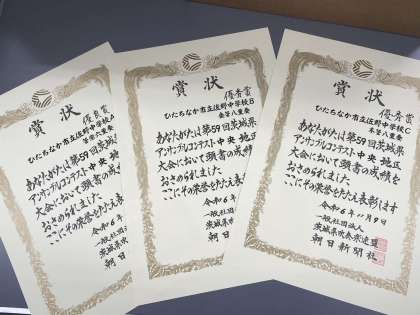 賞状
優良賞
ひたちなか市立佐野中学校A
六重奏
あなたがたは第59回茨城
アンサンブルコンテスト中央地
大会において頭書の成績
おさめられました
ここにその栄誉をたたえ表
令和6年
一般社団
茨城県吹
朝日
賞状
優秀賞
ひたちなか市立佐野中学校B
金管八重奏
あなたがたは第59回茨城県
アンサンブルコンテスト中央地区
大会において頭書の成績
おさめられました
ここにその栄誉をたたえ表
令和6年
一般社団
茨城県吹
朝日
賞状
優秀賞
ひたちなか市立佐野中学校C
木管八重奏
あなたがたは第59回茨城県
アンサンブルコンテスト中央地区
大会において頭書の成績を
おさめられました
ここにその栄誉をたたえ表彰します
令和6年11月9日
一般社団法人
茨城県吹奏楽連盟
朝日新聞社